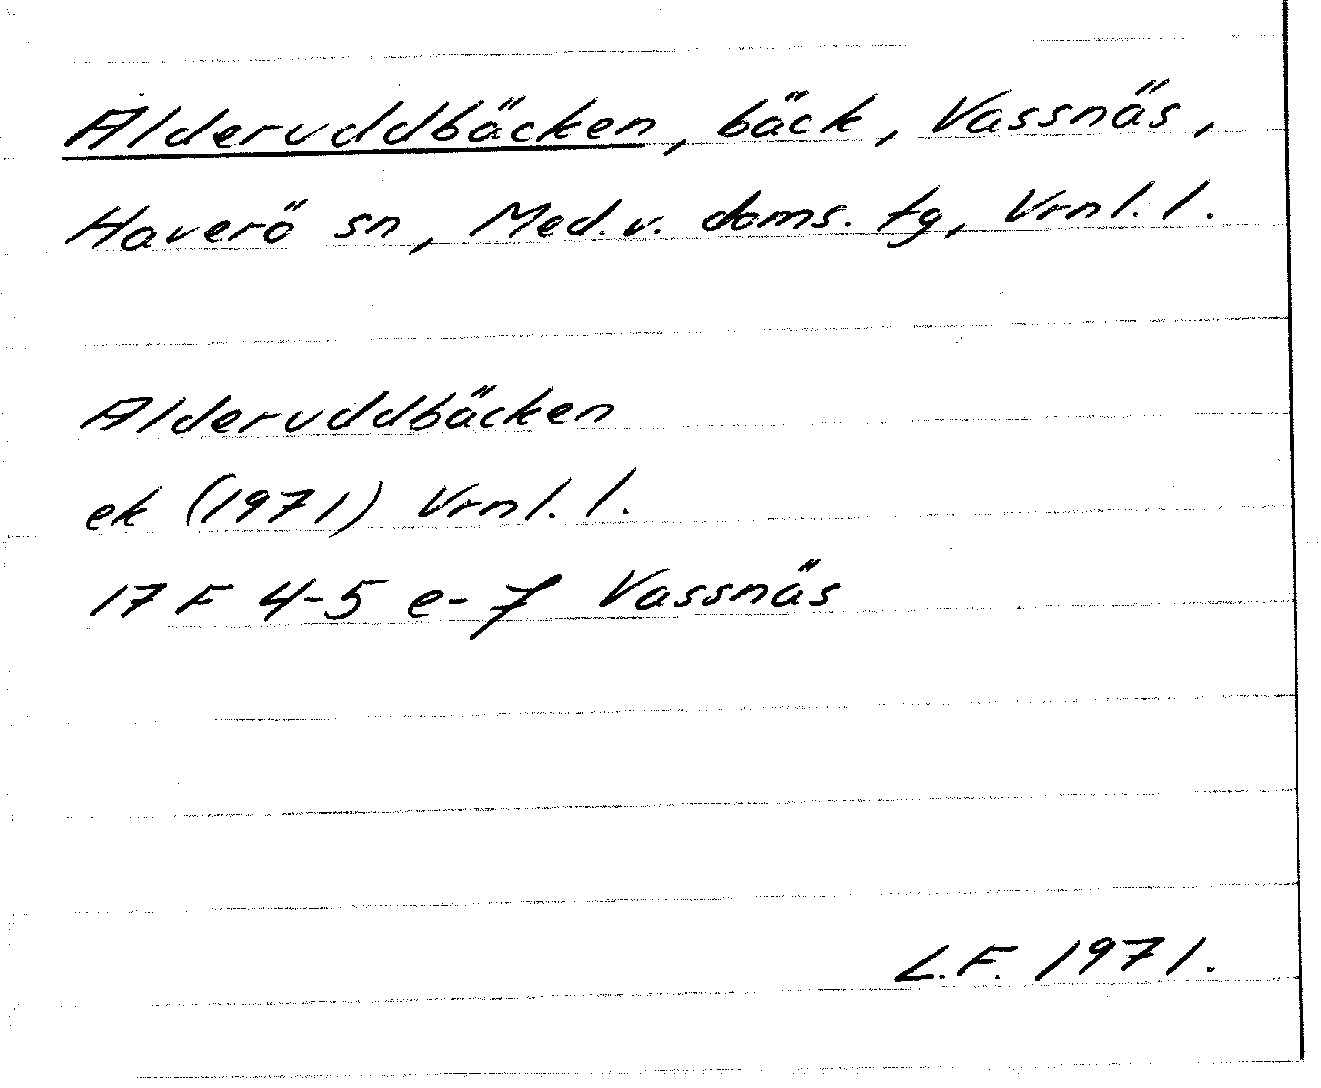 Alderuddbäcken, bäck, Vassnäs,
Haverö sn, Med.v. doms. tg, Vrnl. l.
Alderuddbäcken
ek (1971) Vrnl. l.
17 F 4-5 e-7 Vassnäs
L.F. 1971.